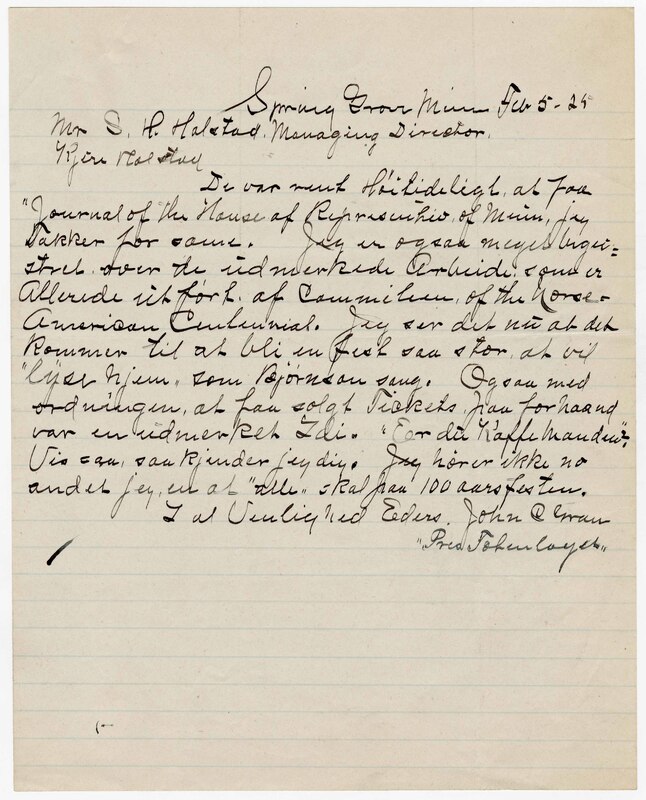 Spring Grove Minn Feb 5-25
Mr S. H. Holstad. Managing Director.
Kjære Holstad
De var rent Høitideligt, at faa
"Journal of the House of Represcentives, of Minn, jeg
Takker for same. Jeg er ogsaa meget begei=
stret over de udmerkede Arbeide, som er
Allerede utført, af Commiteen, of the Norse-
American Centennial. Jeg ser det nu at det
Kommer til at bli en fest saa stor, at vil
"lyse hjem" som Bjørnson sang. Ogsaa med
ordningen, at faa solgt Tickets, paa forhaand
var en udmerket Idi. "Eer du Kaffe Manden"?
Vis saa, saa kjender jeg dig. Jeg hører ikke no
andet jeg, en at "alle" skal paa 100 aarsfesten.
I al Venlighed Eders. John
"Pres Totenlaget"